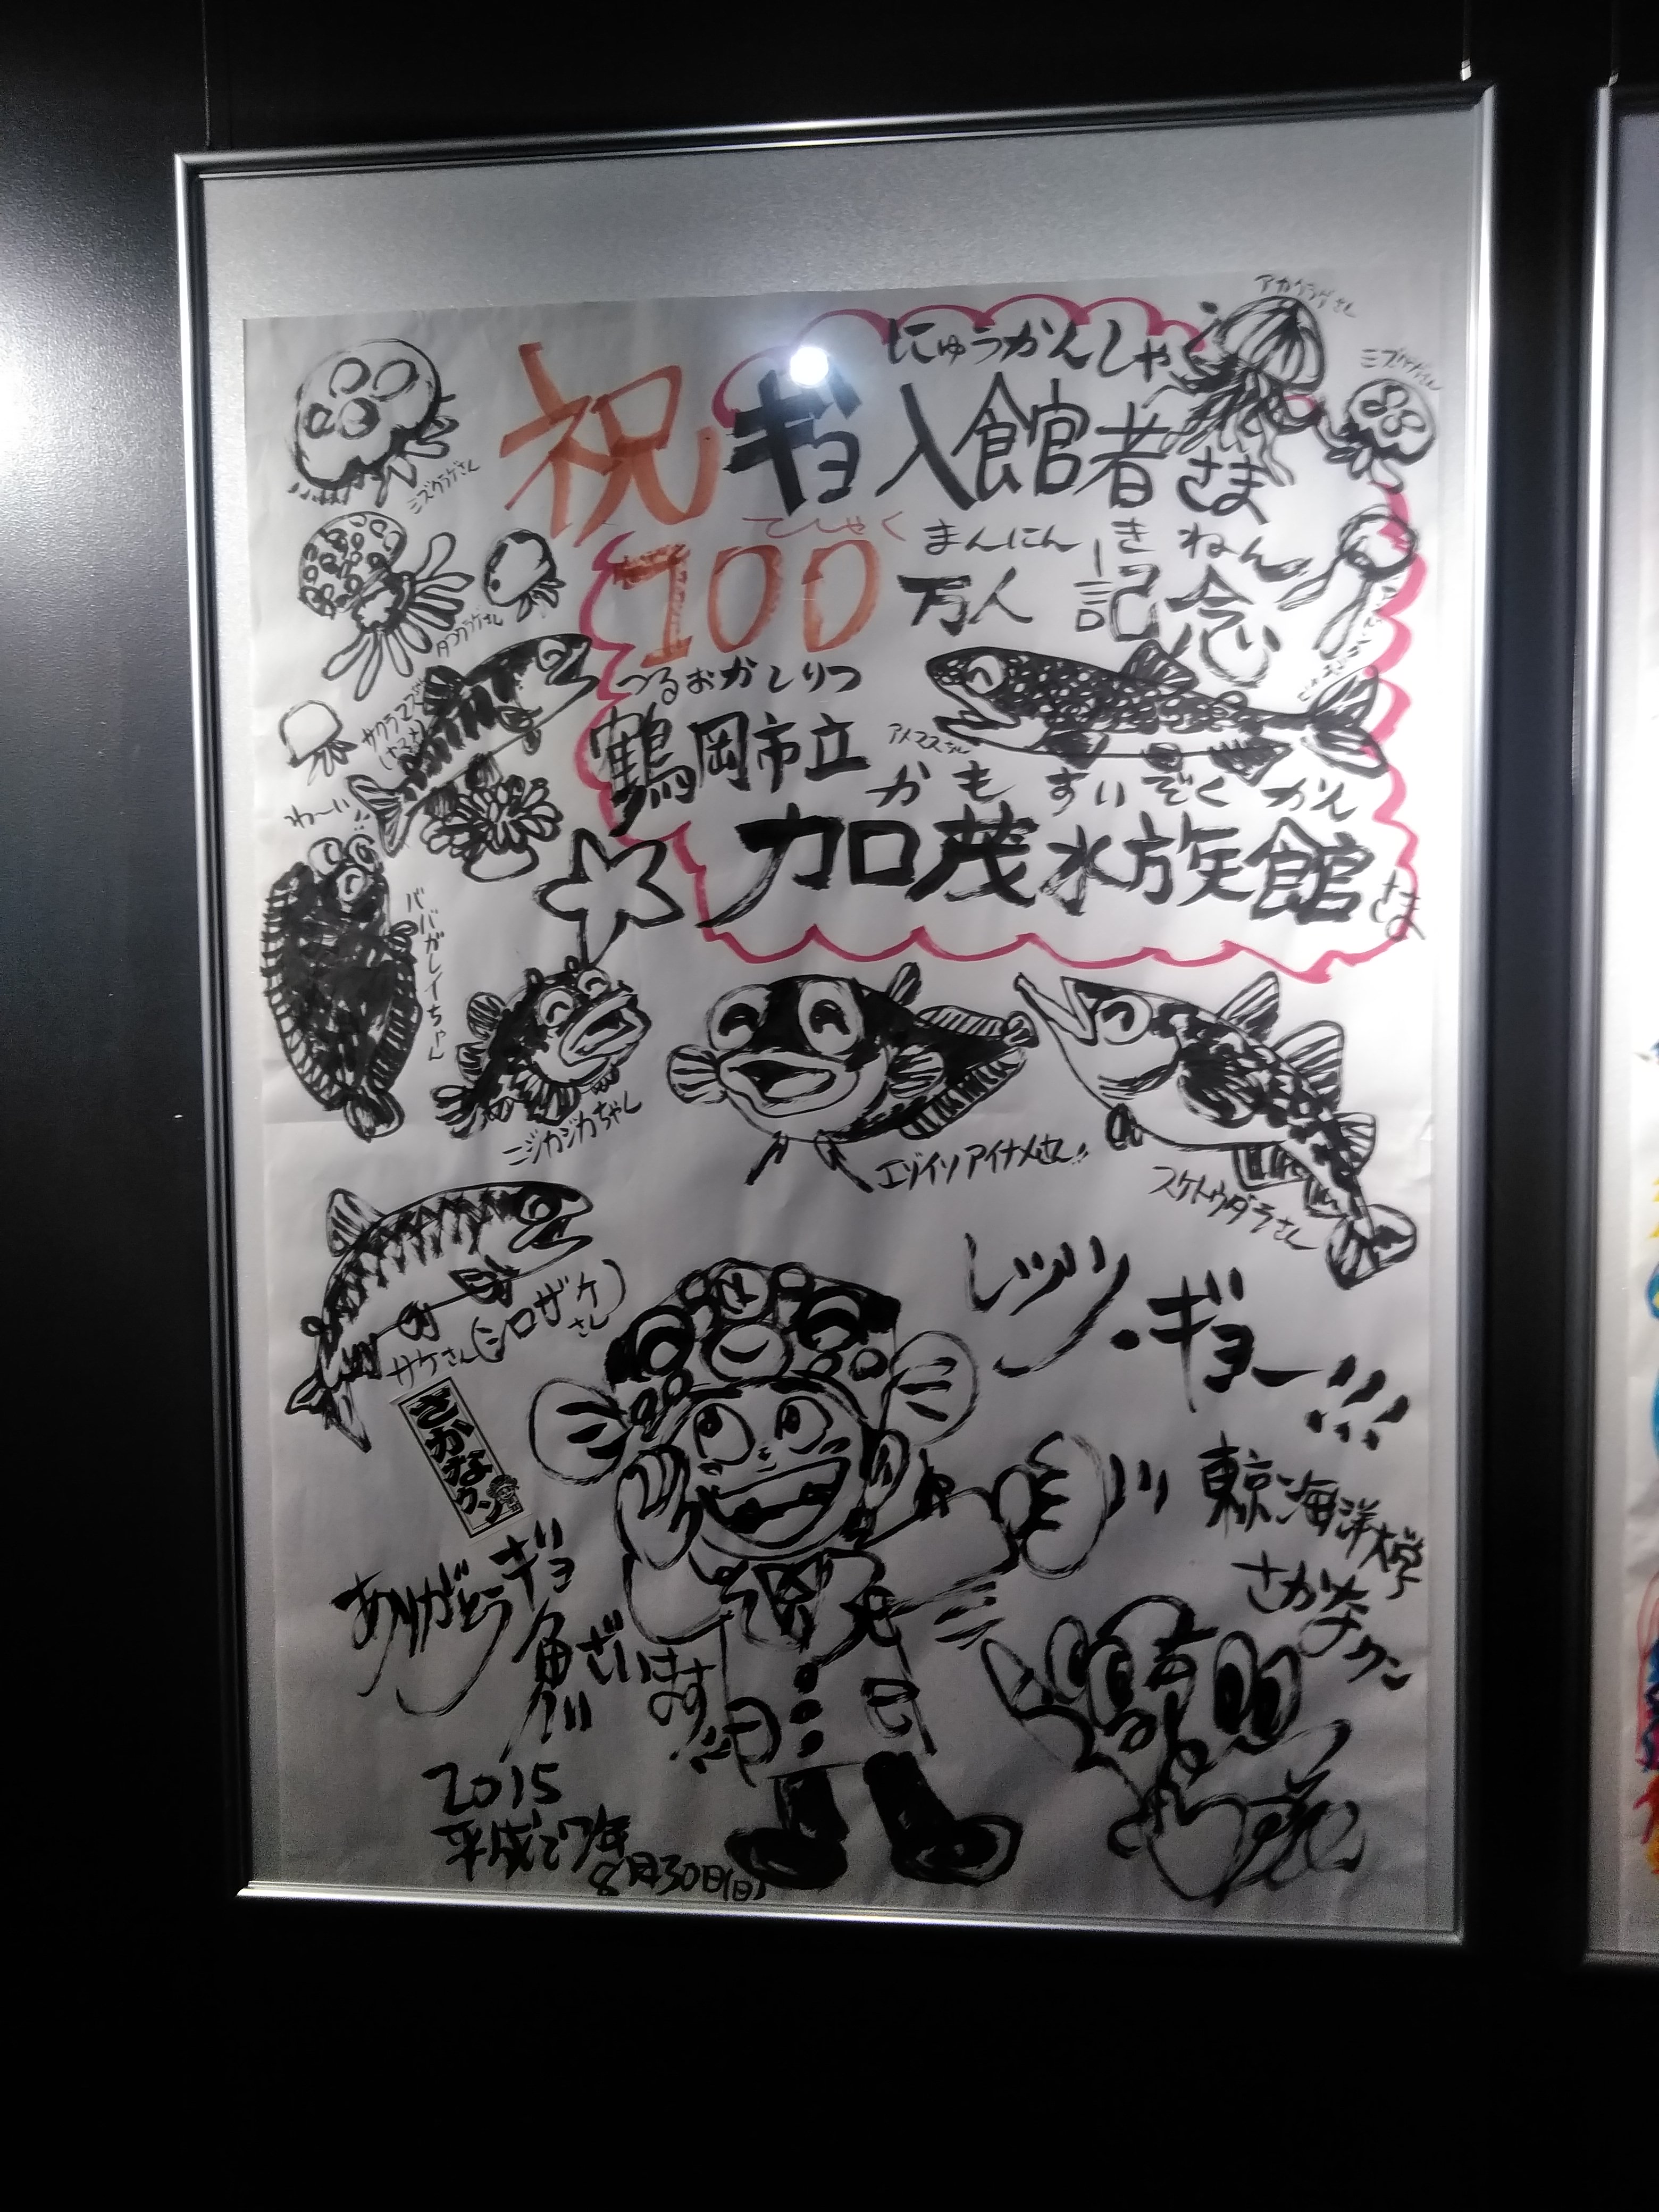 アカクラゲさん
にゅうかんしゃ
祝ギョ入館者さま
ミズクラゲさん
ミズクラゲさん
まんにん きねん
100万人 記念
タコクラゲさん
つるおかしりつ
鶴岡市立
サクラマスさん
(ヤマメ)
アメマスさん
かもすいぞくかん
加茂水族館さま
わ〜い
ババガレイちゃん
ニジカジカちゃん
エゾイソアイナメさん!!
スケトウダラさん
サケさん(シロザケさん)
レッツ・ギョー!!!
さかなクン
東京海洋大学
さかなクン
ありがとうギョ
魚ざいます
2015
平成27年
8月30日(日)